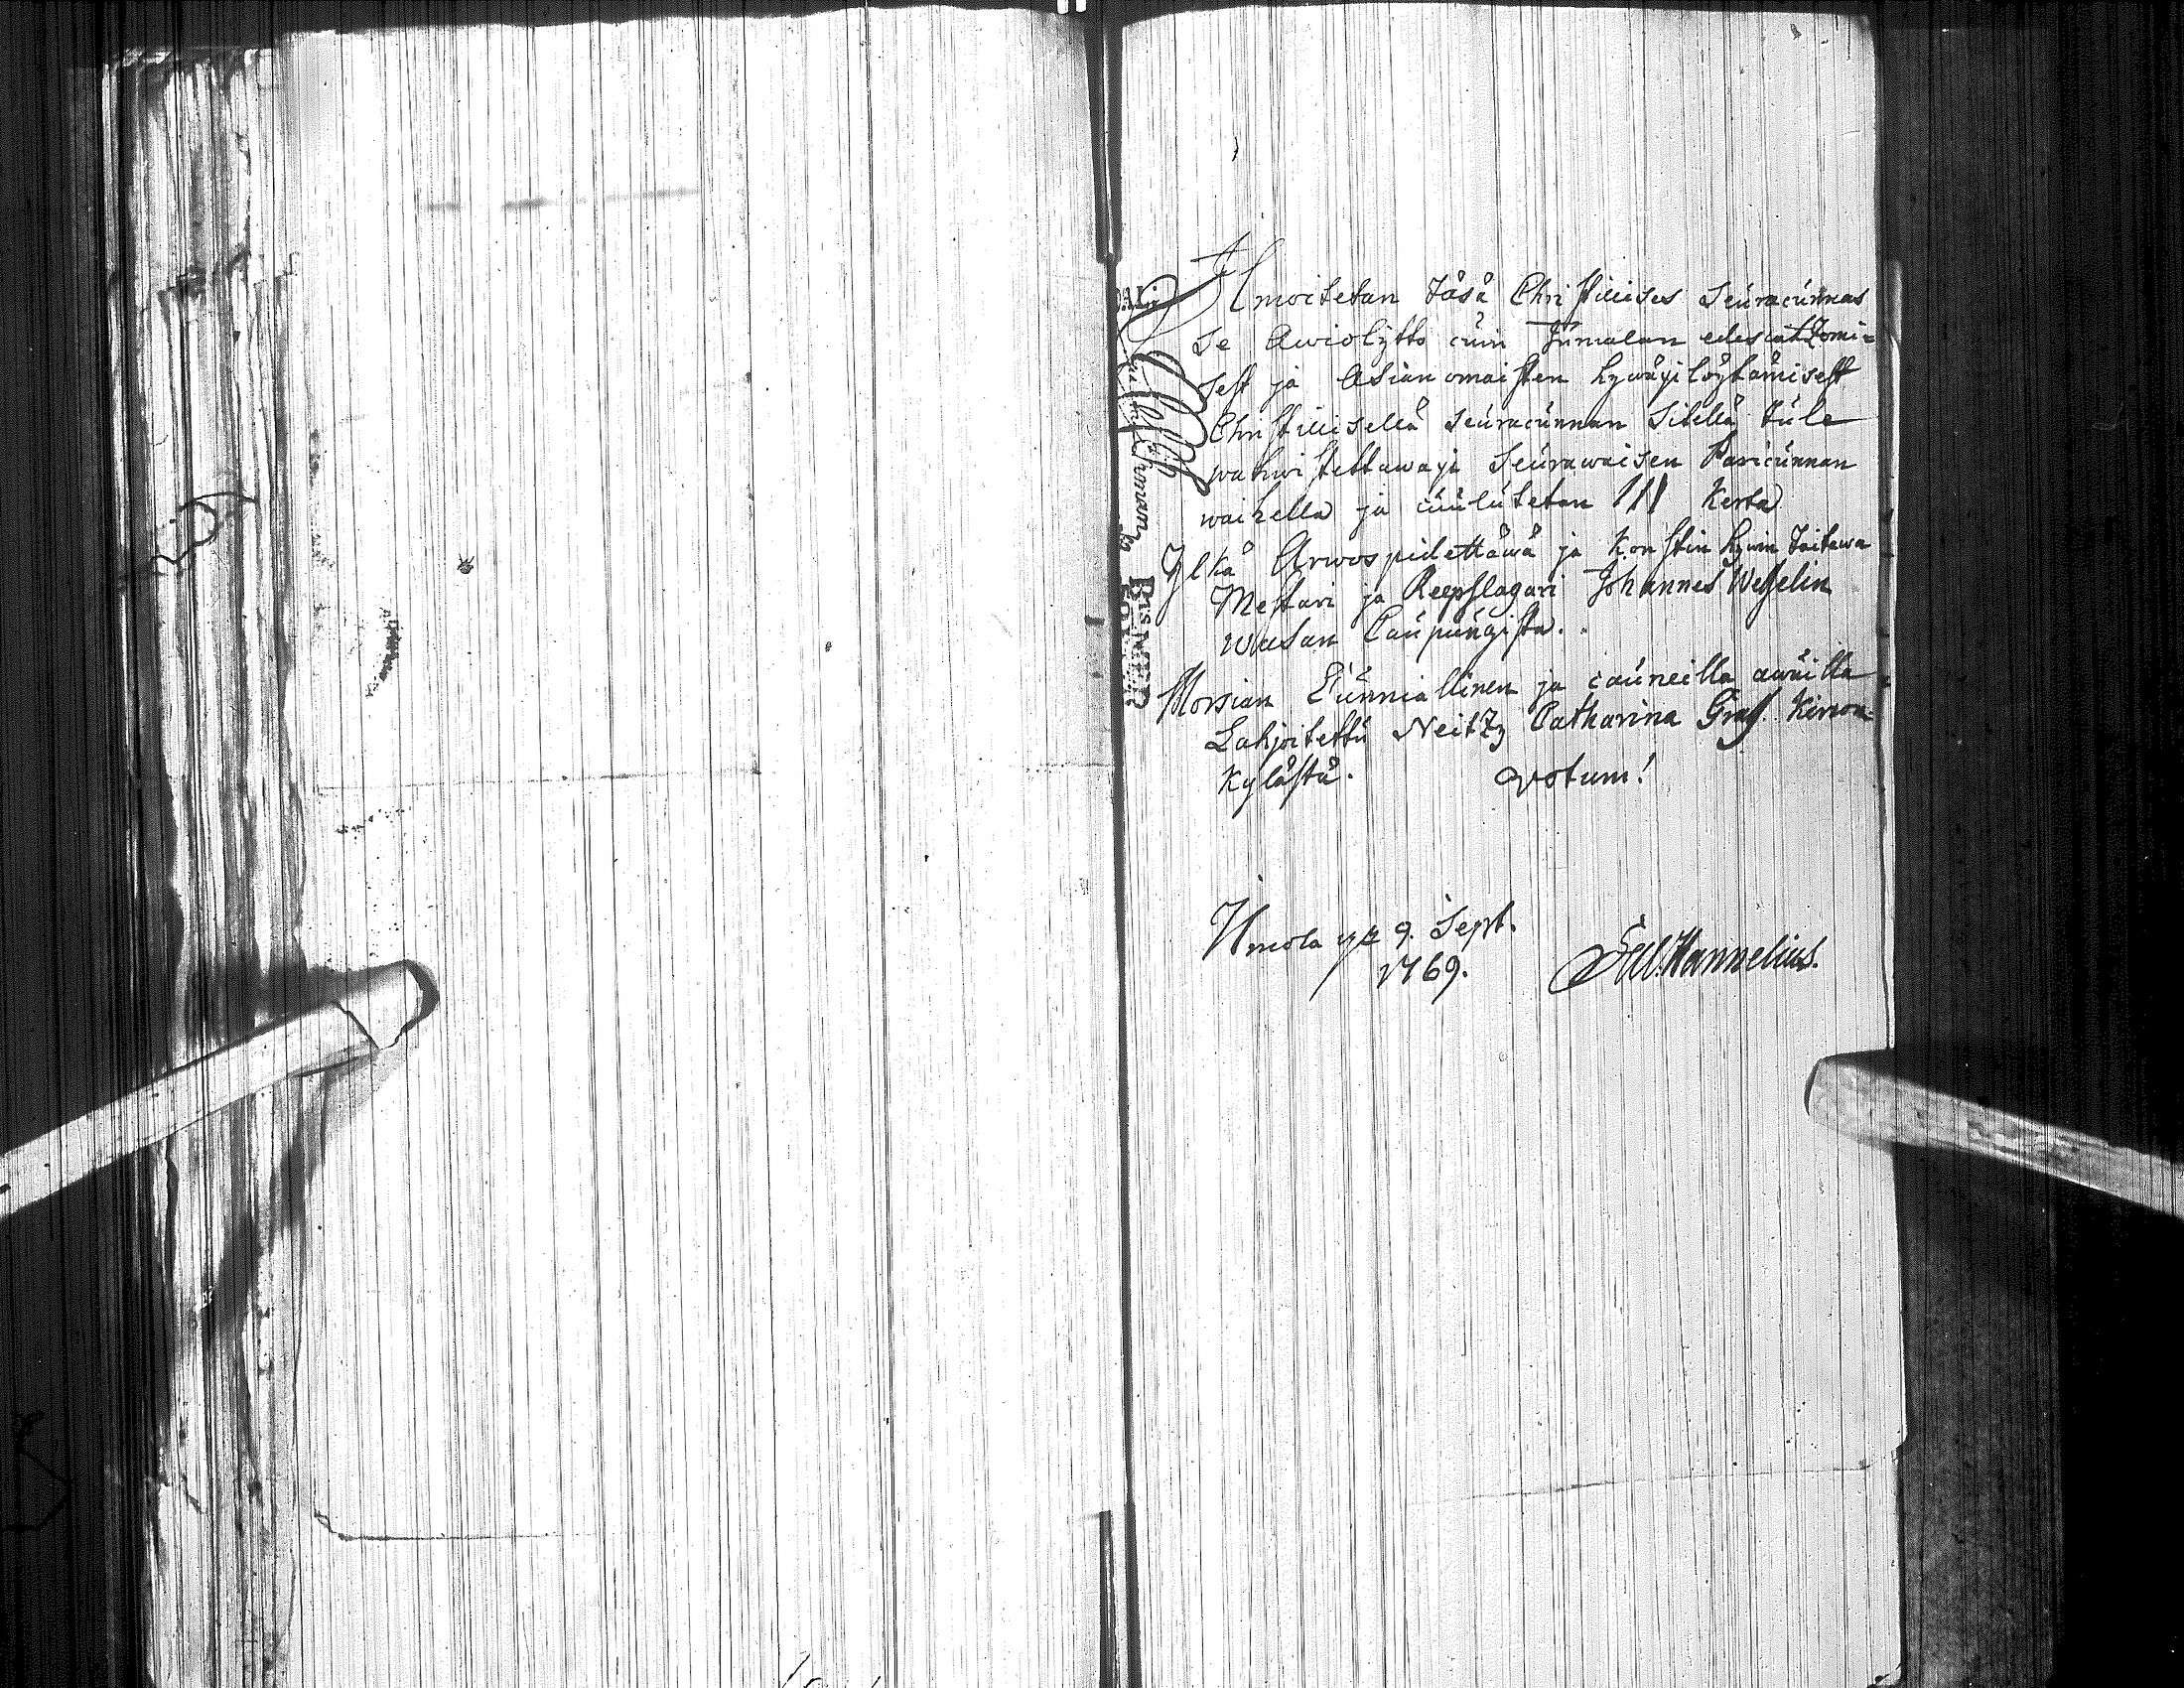 Ilmoitetan täsä Christillises Seuracunnas
se Awioliitto cuin Jumalan edescatzomi=
sest ja Asianomaisten hywäxi löytämisest
Christillisellä Seuracunnan Sitellä tule
wahwistettawaxi Seurawaisen Paricunnan
waihella ja cuulutetan III Kerta
Ylkä Arwos pidettäwä ja Konstin hywin taitawa
Mestari ja Reepslagari Johannes Wesselin
Wasan Caupungista.
Morsian Cunniallinen ja cauneilla awuilla
Lahjoitettu Neitzy Catharina Graf Kircon=
Kylästä. Votum!
Ilmola 9. Sept.
1769. Hannelius.